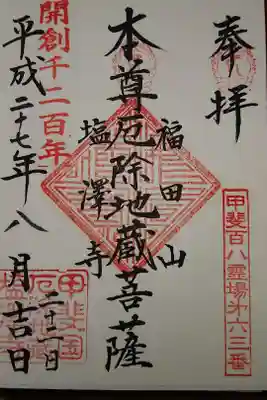 奉拝
甲斐百八霊場第六三番
福田山
本尊厄除地蔵菩薩
塩澤寺
開創千二百年
平成二十七年八月吉日
二十二日